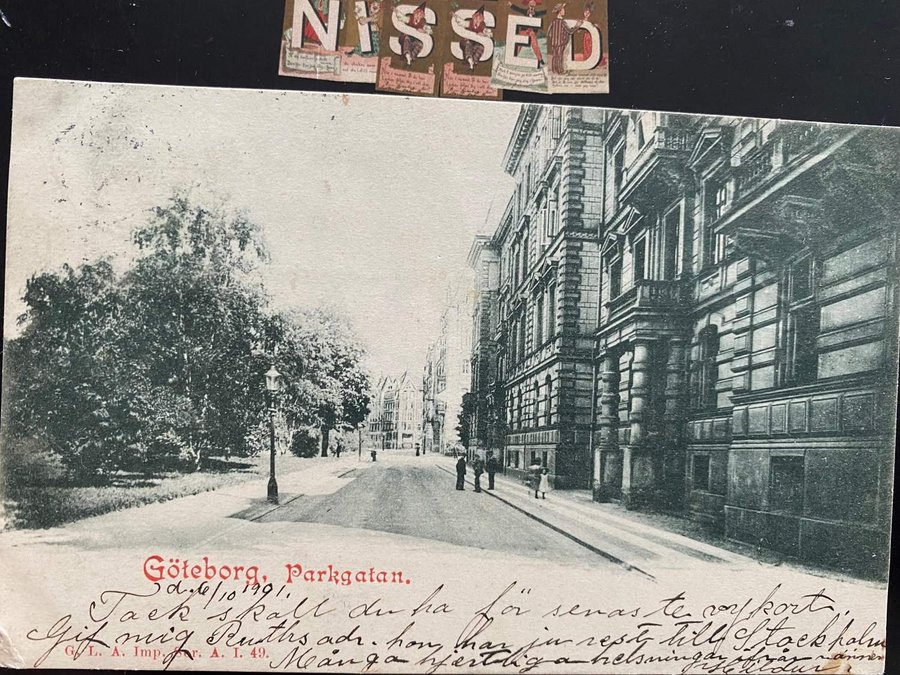 NISSED
Göteborg, Parkgatan.
d. 6/10 1901.
Tack skall du ha för senaste vykort,
Gif mig Ruths adr. hon har ju rest till Stockholm
G. L. A. Imp. Ser. A. I. 49.
Många hjertliga helsningar från vännen